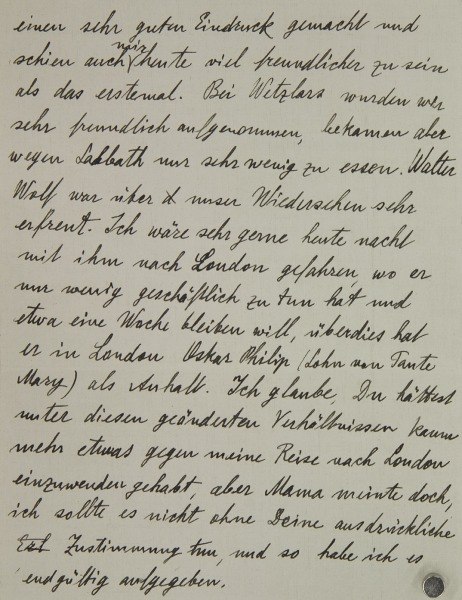 einen sehr guten Eindruck gemacht und
schien auch mir heute viel freundlicher zu sein
als das erstemal. Bei Wetzlars wurden wir
sehr freundlich aufgenommen, bekamen aber
wegen Sabbath nur sehr wenig zu essen. Walter
Wolf war über d unser Wiedersehen sehr
erfreut. Ich wäre sehr gerne heute nacht
mit ihm nach London gefahren, wo er
nur wenig geschäftlich zu tun hat und
etwa eine Woche bleiben will, überdies hat
er in London Oskar Philip (Sohn von Tante
Mary) als Anhalt. Ich glaube, Du hättest
unter diesen geänderten Verhältnissen kaum
mehr etwas gegen meine Reise nach London
einzuwenden gehabt, aber Mama meinte doch,
ich sollte es nicht ohne Deine ausdrückliche
Zustimmung tun, und so habe ich es
endgültig aufgegeben.